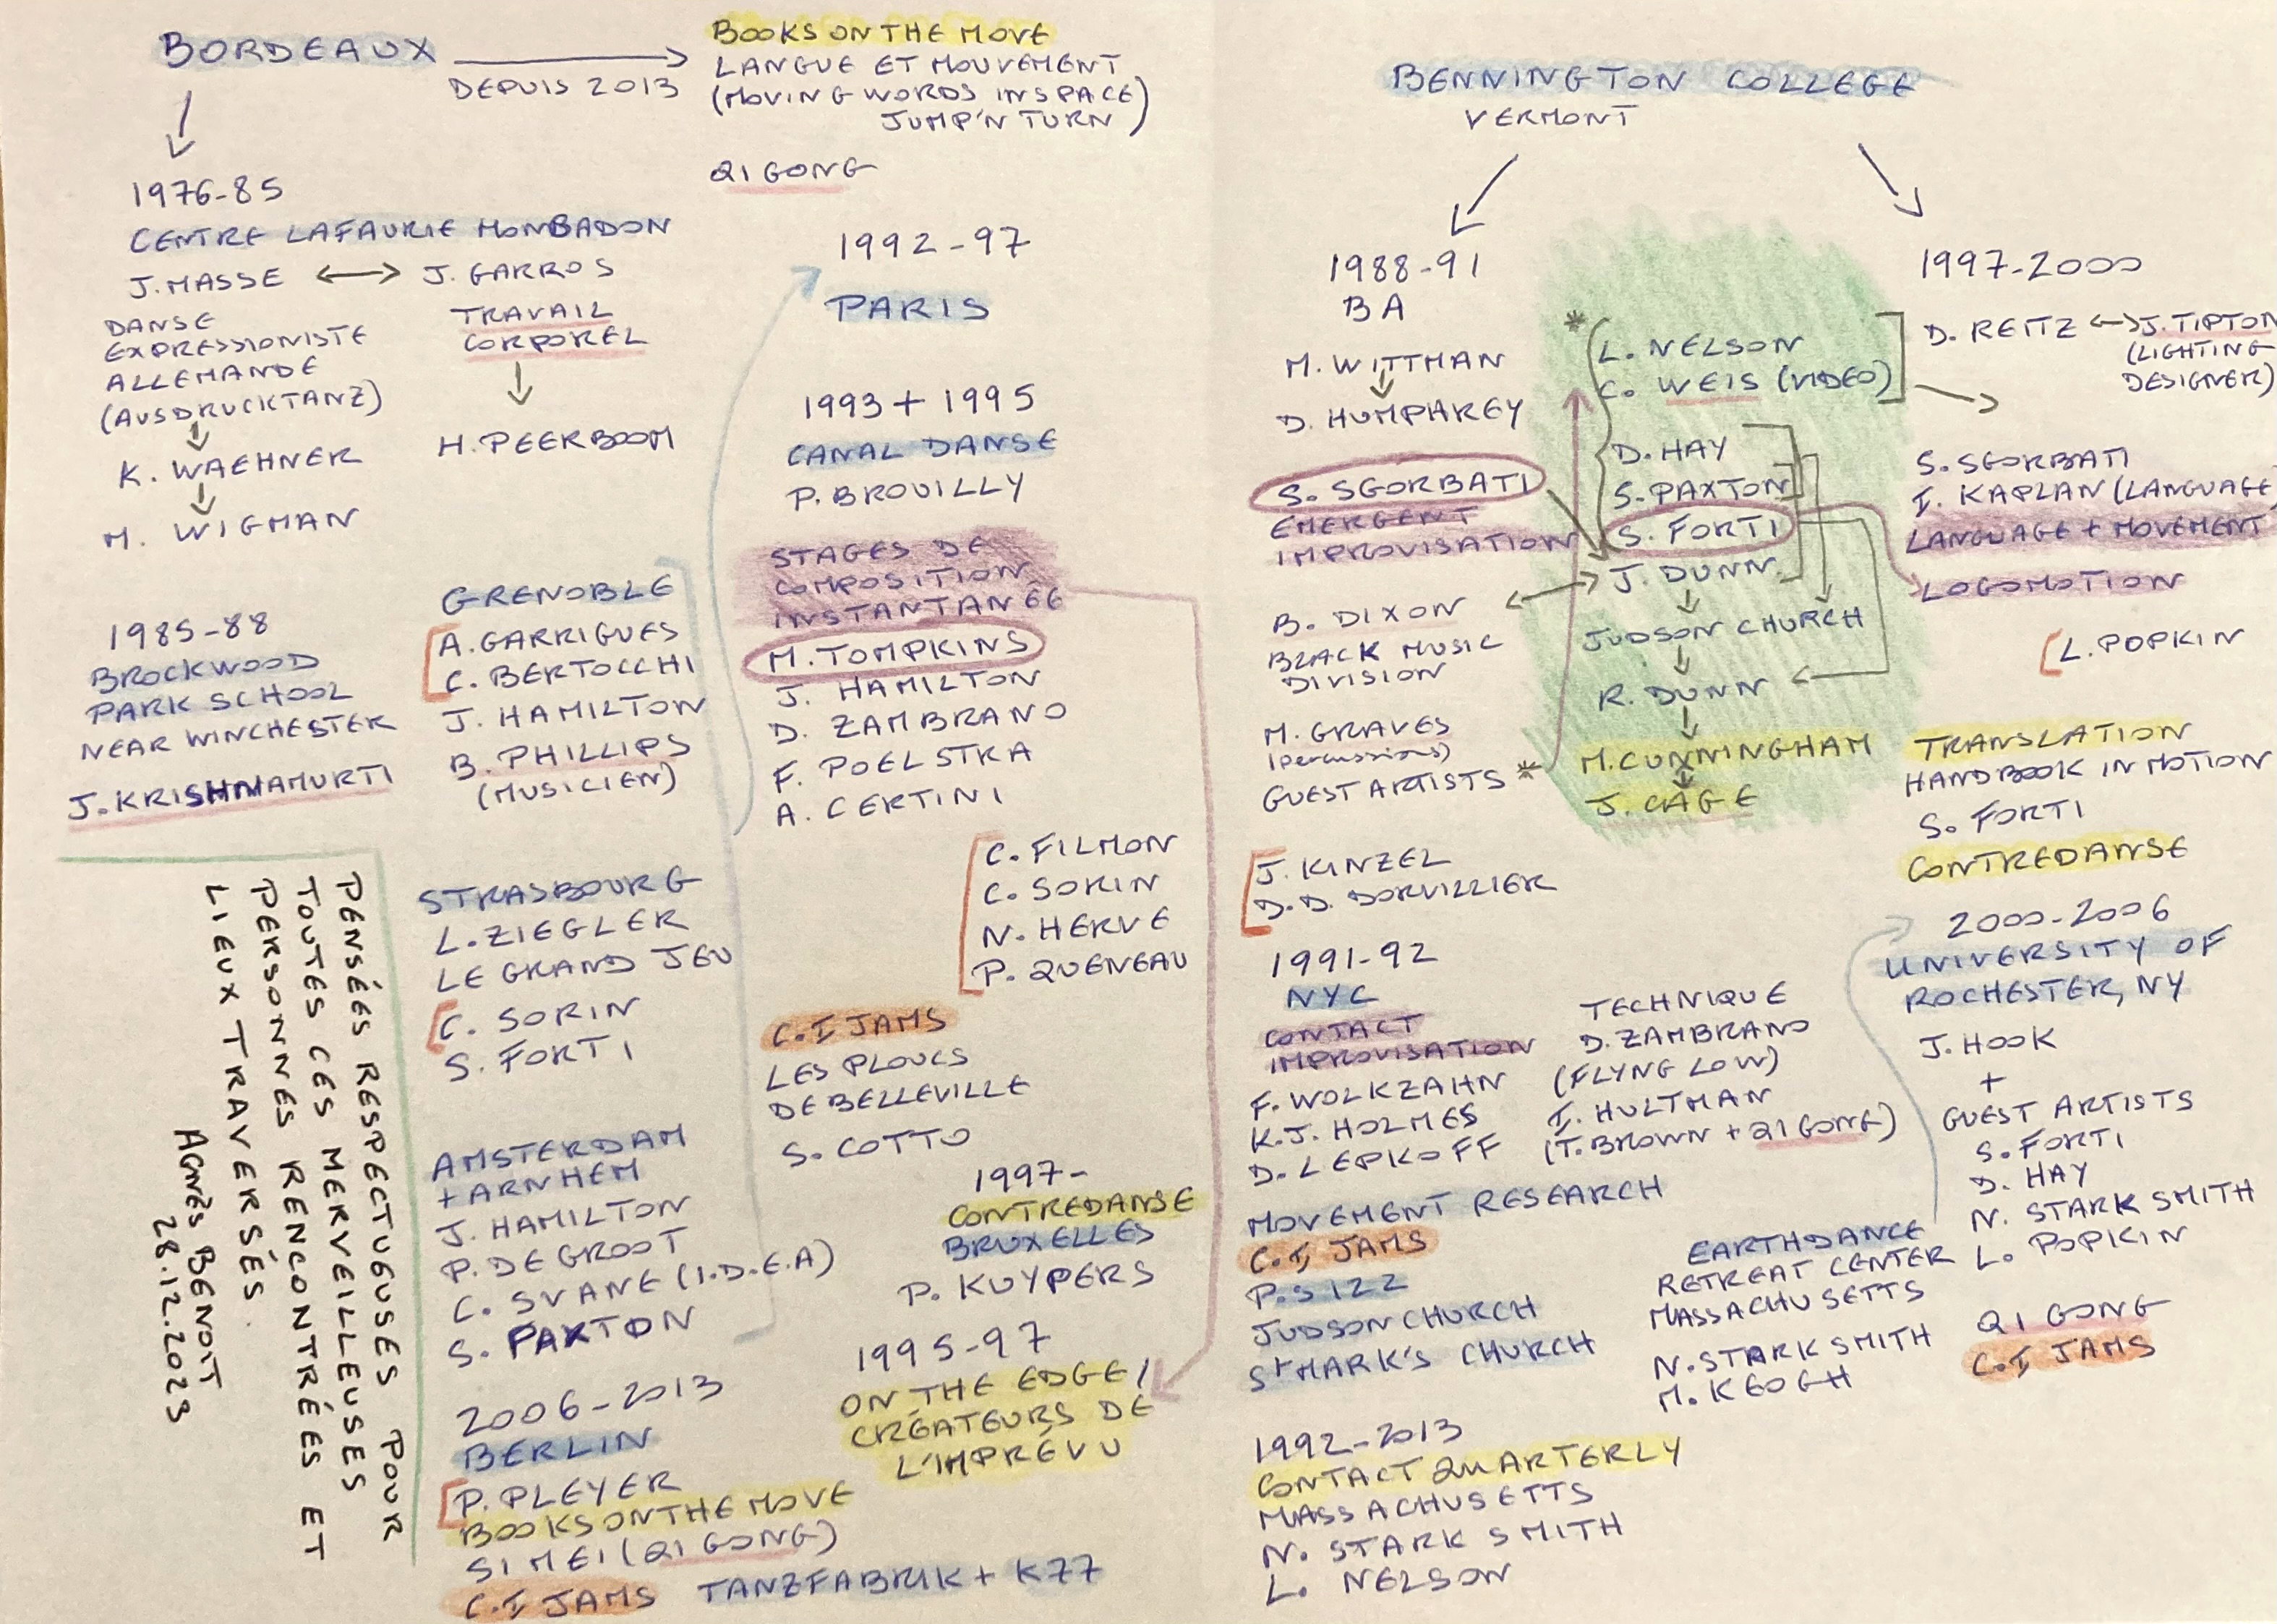 BORDEAUX
DEPUIS 2013
BOOKS ON THE MOVE
LANGUE ET MOUVEMENT
(MOVING WORDS IN SPACE)
JUMP'N TURN)
QI GONG
1976-85
CENTRE LAFAURIE MONBADON
J. MASSE ↔ J. GARROS
DANSE
EXPRESSIONISTE
ALLEMANDE
(AUSDRUCKTANZ)
K. WAEHNER
M. WIGMAN
TRAVAIL
CORPOREL
H. PEERBOOM
1985-88
BROCKWOOD
PARK SCHOOL
NEAR WINCHESTER
J. KRISHNAMURTI
GRENOBLE
A. GARRIGUES
C. BERTOCCHI
J. HAMILTON
B. PHILLIPS
(MUSICIEN)
STRASBOURG
L. ZIEGLER
LE GRAND JEU
C. SORIN
S. FORTI
AMSTERDAM
+ ARNHEM
J. HAMILTON
P. DE GROOT
C. SVANE (I.D.E.A)
S. PAXTON
2006-2013
BERLIN
P. PLEYER
BOOKS ON THE MOVE
SIMEI (QI GONG)
C.I JAMS TANZFABRIK + K77
PENSÉES RESPECTUEUSES POUR
TOUTES CES MERVEILLEUSES
PERSONNES RENCONTRÉES ET
LIEUX TRAVERSÉS.
AGNÈS BENOIT
28.12.2023
1992-97
PARIS
1993 + 1995
CANAL DANSE
P. BROUILLY
STAGES DE
COMPOSITION
INSTANTANÉE
M. TOMPKINS
J. HAMILTON
D. ZAMBRANO
F. POELSTRA
A. CERTINI
C. FILMON
C. SORIN
N. HERVE
P. QUENEAU
C.I JAMS
LES PLOUCS
DE BELLEVILLE
S. COTTO
1997-
CONTREDANSE
BRUXELLES
P. KUYPERS
1995-97
ON THE EDGE/
CRÉATEURS DE
L'IMPRÉVU
BENNINGTON COLLEGE
VERMONT
1988-91
BA
M. WITTMAN
D. HUMPHREY
S. SGORBATI
EMERGENT
IMPROVISATION
B. DIXON
BLACK MUSIC
DIVISION
M. GRAVES
(percussions)
GUEST ARTISTS *
J. KINZEL
D.D. DORVILLIER
* L. NELSON
C. WEIS (VIDEO)
D. HAY
S. PAXTON
S. FORTI
J. DUNN
JUDSON CHURCH
R. DUNN
M. CUNNINGHAM
J. CAGE
1997-2000
D. REITZ ↔ J. TIPTON
(LIGHTING
DESIGNER)
S. SGORBATI
I. KAPLAN (LANGUAGE)
LANGUAGE + MOVEMENT
LOGOMOTION
L. POPKIN
TRANSLATION
HANDBOOK IN MOTION
S. FORTI
CONTREDANSE
1991-92
NYC
CONTACT
IMPROVISATION
F. WOLKZAHN
K.J. HOLMES
D. LEPKOFF
TECHNIQUE
D. ZAMBRANO
(FLYNG LOW)
I. HULTMAN
(T. BROWN + QI GONG)
MOVEMENT RESEARCH
C.I JAMS
P.S 122
JUDSON CHURCH
ST MARK'S CHURCH
EARTHDANCE
RETREAT CENTER
MASSACHUSETTS
N. STARK SMITH
M. KEOGH
1992-2013
CONTACT QUARTERLY
MASSACHUSETTS
N. STARK SMITH
L. NELSON
2000-2006
UNIVERSITY OF
ROCHESTER, NY
J. HOOK
+
GUEST ARTISTS
S. FORTI
D. HAY
N. STARK SMITH
L. POPKIN
QI GONG
C.I JAMS